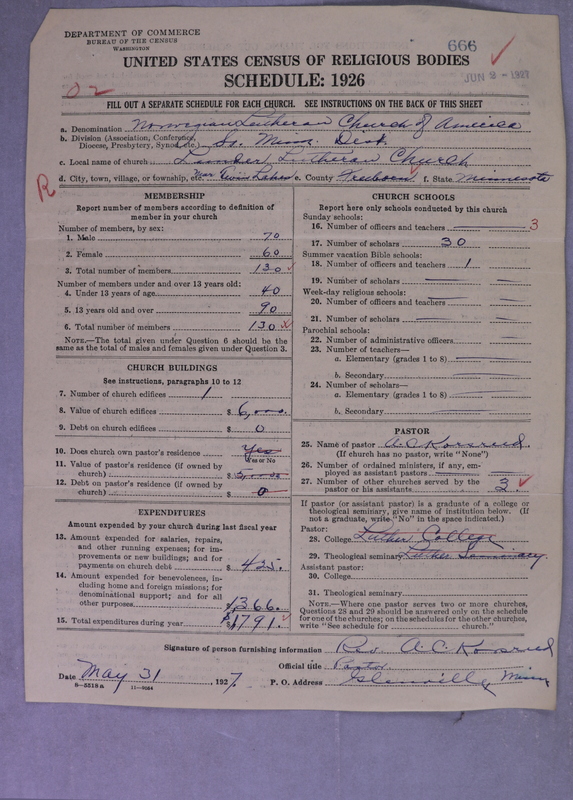 DEPARTMENT OF COMMERCE
BUREAU OF THE CENSUS
WASHINGTON
666
JUN 2 - 1927
UNITED STATES CENSUS OF RELIGIOUS BODIES
SCHEDULE: 1926
FILL OUT A SEPARATE SCHEDULE FOR EACH CHURCH. SEE INSTRUCTIONS ON THE BACK OF THIS SHEET
a. Denomination Norwegian Lutheran Church of America
b. Division (Association, Conference, Diocese, Presbytery, Synod, etc.) So. Minn. Dist.
c. Local name of church Lutheran Church
d. City, town, village, or township, etc. Near Twin Lakes e. County Freeborn f. State Minnesota
R
MEMBERSHIP
Report number of members according to definition of
member in your church
Number of members, by sex:
1. Male 70
2. Female 60
3. Total number of members 130
Number of members under and over 13 years old:
4. Under 13 years of age 40
5. 13 years old and over 90
6. Total number of members 130
NOTE.—The total given under Question 6 should be the
same as the total of males and females given under Question 3.
CHURCH BUILDINGS
See instructions, paragraphs 10 to 12
7. Number of church edifices 1
8. Value of church edifices $ 6,000.
9. Debt on church edifices $ 0
10. Does church own pastor's residence? Yes
Yes or No
11. Value of pastor's residence (if owned by
church) $ 5,000
12. Debt on pastor's residence (if owned by
church) $ 0
EXPENDITURES
Amount expended by your church during last fiscal year
13. Amount expended for salaries, repairs,
and other running expenses; for im-
provements or new buildings; and for
payments on church debt $ 425.
14. Amount expended for benevolences, in-
cluding home and foreign missions; for
denominational support; and for all
other purposes 1366.
15. Total expenditures during year $1791.
CHURCH SCHOOLS
Report here only schools conducted by this church
Sunday schools:
16. Number of officers and teachers 3
17. Number of scholars 30
Summer vacation Bible schools:
18. Number of officers and teachers 1
19. Number of scholars
Week-day religious schools:
20. Number of officers and teachers
21. Number of scholars
Parochial schools:
22. Number of administrative officers
23. Number of teachers—
a. Elementary (grades 1 to 8)
b. Secondary
24. Number of scholars—
a. Elementary (grades 1 to 8)
b. Secondary
PASTOR
25. Name of pastor A. C.
(If church has no pastor, write "None")
26. Number of ordained ministers, if any, em-
ployed as assistant pastors
27. Number of other churches served by the
pastor or his assistants 3.
If pastor (or assistant pastor) is a graduate of a college or
theological seminary, give name of institution below. (If
not a graduate, write "No" in the space indicated.)
Pastor:
28. College Luther College
29. Theological seminary Luther Seminary
Assistant pastor:
30. College
31. Theological seminary
NOTE.—Where one pastor serves two or more churches,
Questions 28 and 29 should be answered only on the schedule
for one of the churches; on the schedules for the other churches,
write "See schedule for church."
Signature of person furnishing information Rev. A. C.
Official title Pastor
Date May 31, 1927.
P. O. Address Glenville, Minn
8-5518a 11-9064